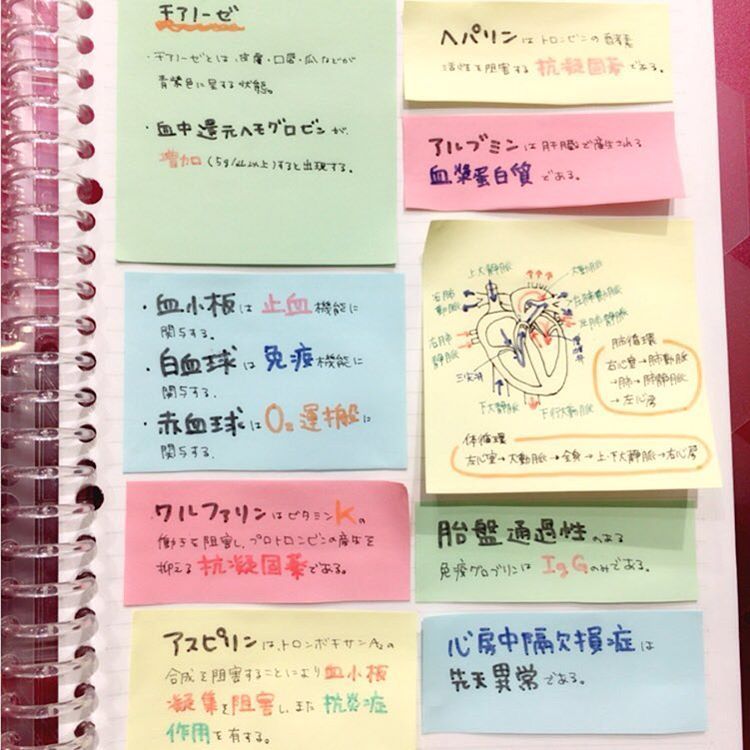 チアノーゼ
・チアノーゼとは、皮膚・口唇・爪などが
青紫色に呈する状態。
・血中還元ヘモグロビンが、
増加(5g/dL以上)すると出現する。
・血小板は止血機能に
関与する.
・白血球は免疫機能に
関与する.
・赤血球はO₂運搬に
関与する.
・ワルファリンはビタミンKの
働きを阻害し、プロトロンビンの産生を
抑える抗凝固薬である。
アスピリンは、トロンボキサンA₂の
合成を阻害することにより血小板
凝集を阻害し、また抗炎症
作用を有する。
ヘパリンはトロンビンの酵素
活性を阻害する抗凝固薬である。
アルブミンは肝臓で産生される
血漿蛋白質である。
上大静脈
大動脈
右肺
動脈
左肺動脈
左肺静脈
右肺
静脈
三尖弁
僧帽弁
下大静脈
下行大動脈
肺循環
右心室→肺動脈
→肺→肺静脈
→左心房
体循環
左心室→大動脈→全身→上・下大静脈→右心房
胎盤通過性のある
免疫グロブリンはIgGのみである。
心房中隔欠損症は
先天異常である。